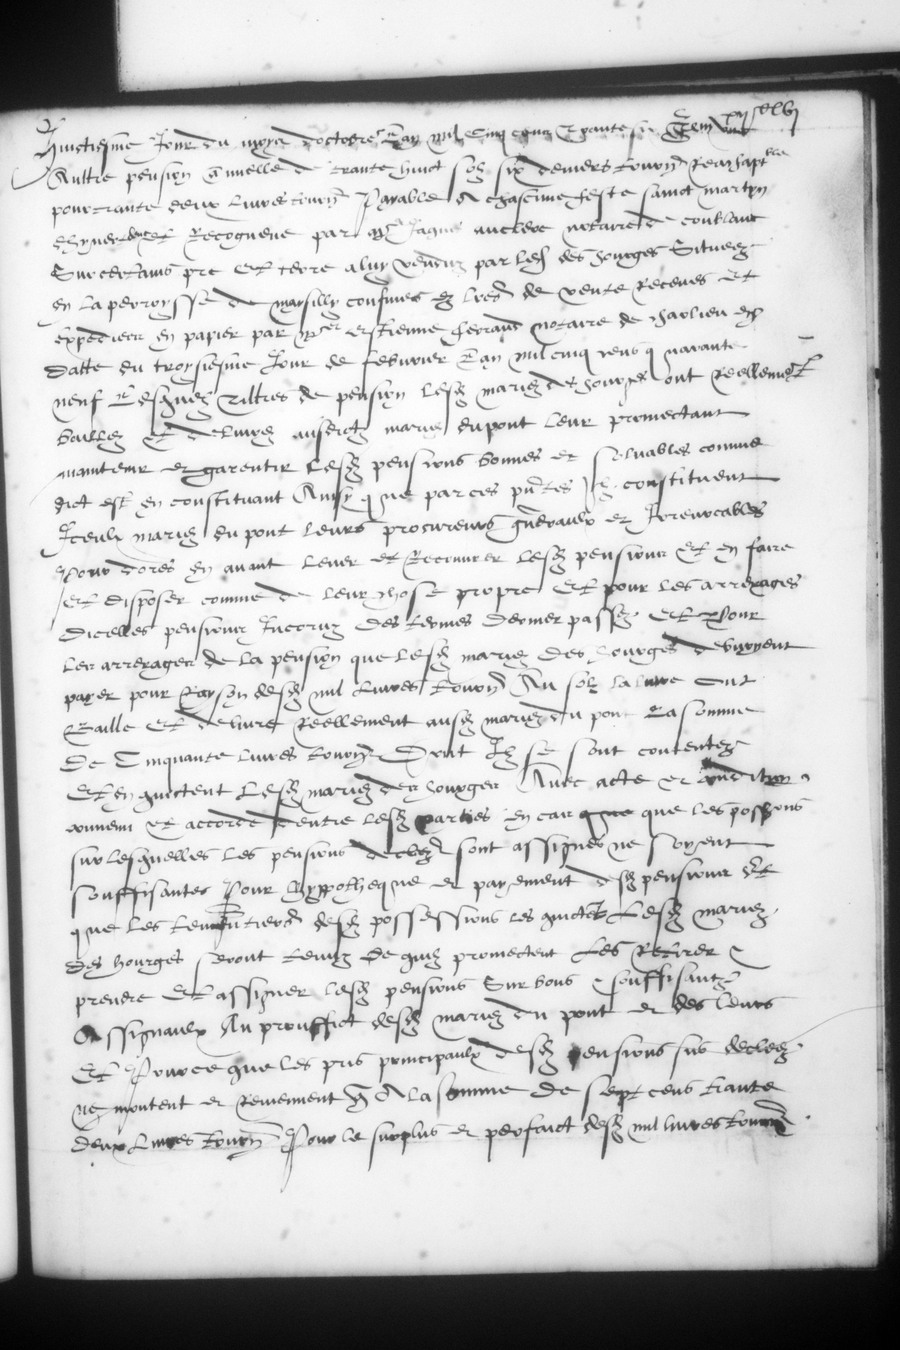 huictiesme Jour du moys doctobre Lan mil cinq cens trante six Item
Aultre pension annuelle de trante huict solz six deniers tournois Reachaptable
pour trante deux Livres tournois Payable A chascune feste sainct martin
dhyver Recogneue par Me Jaques notaire de
Sur certains pre et terre a luy venduz par lesd des hourges Situeez
en la parroysse de marsilly confines es lres de vente Receues et
expediees en papier par Me estienne notaire de charlieu en
datte du troysiesme Jour de febvrier Lan mil cinq cens quarante
neuf Lesquelz tiltres de pension lesd mariez des hourges ont Reellement
baillez et delivrez ausdictz mariez dupont leur promectant
maintenir et garentir Lesd pensions bonnes et solvables comme
dict est en constituant Ainsy que par ces pntes Ilz constituent
Iceulx mariez du pont leurs procureurs gnéraulx et Irrevocables
Pour dores en avant lever et Recouvrer lesd pensions Et en faire
et disposer comme de leur chose propre Et pour les arrerages
dicelles pensions Encoruz des termes dernier passez Et Pour
les arrerages de la pension que lesd mariez des hourges debvoyent
payer pour Rayson desd mil Livres tournois Au solz la livre ont
Baille Et delivre Reellement ausd mariez du pont La somme
De Cinquante livres tournois Dont Ilz se sont contentez
Et en quictent Lesd mariez des hourges Avec acte et condition
convenu et accorde dentre lesd parties En cas que les possions
sur lesquelles les pensions declez sont assignes ne soyent
souffisantes Pour hyppotheque et payement desd pensions Et
que les tenentiers desd possessions les quictet Lesd mariez
des hourges seront tenuz De quilz promectent Les Retirer &
prendre Et assigner lesd pensions Sur bons & souffisantz
Assignaulx Au prouffict desd mariez du pont et des leurs
Et Pource que les pris principaulx desd pensions sus declez
ne montent et Reviennent que A la somme de sept cens trante
deux Livres tournois Pour le surplus et perfaict desd mil livres tournois